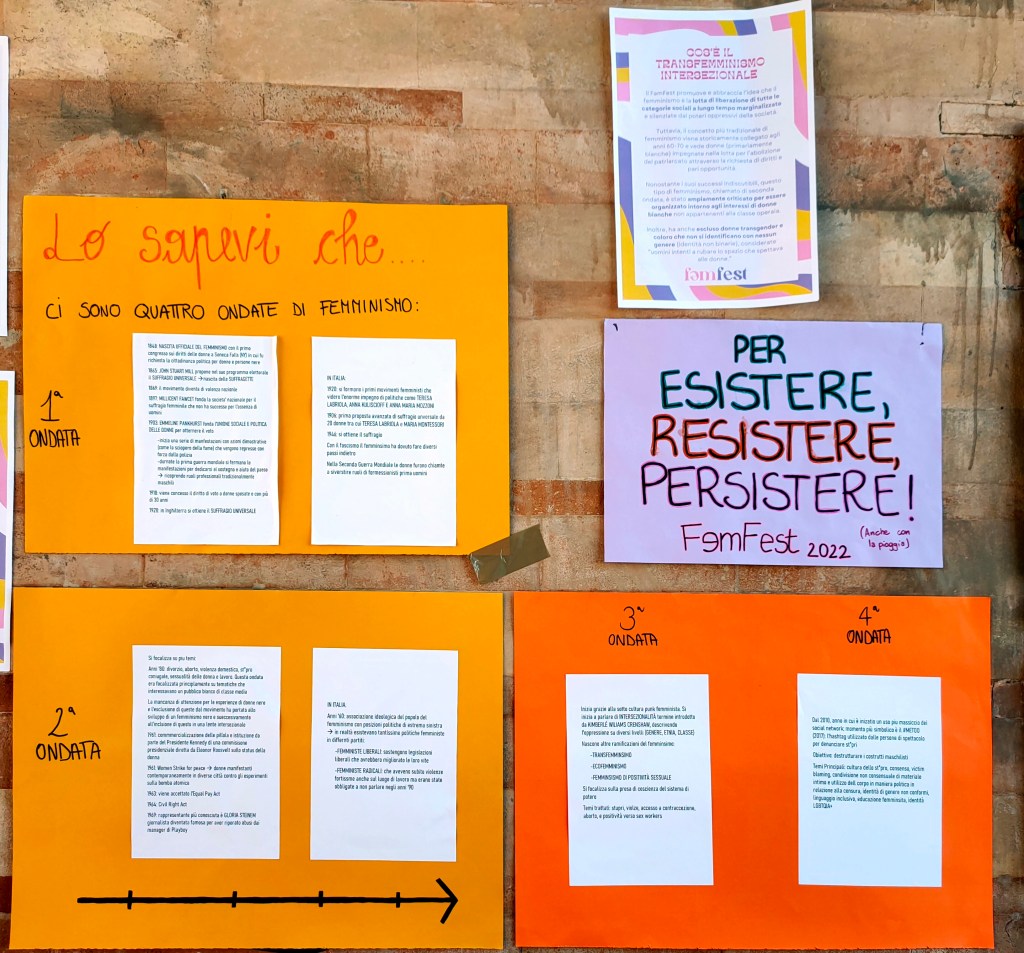 COS'È IL
TRANSFEMMINISMO
INTERSEZIONALE
Il FemFest promuove e abbraccia l'idea che il
femminismo è la lotta di liberazione di tutte le
categorie sociali a lungo tempo marginalizzate
e silenziate dai poteri oppressivi della società.
Tuttavia, il concetto più tradizionale di
femminismo viene storicamente collegato agli
anni 60-70 e vede donne (primariamente
bianche) impegnate nella lotta per l'abolizione
del patriarcato attraverso la richiesta di diritti e
pari opportunità.
Nonostante i suoi successi indiscutibili, questo
tipo di femminismo, chiamato di seconda
ondata, è stato ampiamente criticato per essere
organizzato intorno agli interessi di donne
bianche non appartenenti alla classe operaia.
Inoltre, ha anche escluso donne transgender e
coloro che non si identificano con nessun
genere (identità non binarie), considerate
"uomini intenti a rubare lo spazio che spettava
alle donne."
fəmfest
Lo sapevi che....
CI SONO QUATTRO ONDATE DI FEMMINISMO:
1ª
ONDATA
1848: NASCITA UFFICIALE DEL FEMMINISMO con il primo
congresso sui diritti delle donne a Seneca Falls (NY) in cui fu
richiesta la cittadinanza politica per donne e persone nere
1865: JOHN STUART MILL propone nel suo programma elettorale
il SUFFRAGIO UNIVERSALE → nascita delle SUFFRAGETTE
1869: il movimento diventa di violenza nazionale
1897: MILLICENT FAWCET fonda la societa' nazionale per il
suffragio femminile che non ha successo per l'assenza di
uomini
1903: EMMELINE PANKHURST fonda l'UNIONE SOCIALE E POLITICA
DELLE DONNE per ottenere il voto
-inizia una serie di manifestazioni con azioni dimostrative
(come lo sciopero della fame) che vengono represse con
forza dalla polizia
-durante la prima guerra mondiale si fermano le
manifestazioni per dedicarsi al sostegno e aiuto del paese
→ ricoprendo ruoli professionali tradizionalmente
maschili
1918: viene concesso il diritto di voto a donne sposate e con più
di 30 anni
1928: in Inghilterra si ottiene il SUFFRAGIO UNIVERSALE
IN ITALIA:
1920: si formano i primi movimenti femministi che
videro l'enorme impegno di politiche come TERESA
LABRIOLA, ANNA KULISCIOFF E ANNA MARIA MOZZONI
1906: prima proposta avanzata di suffragio universale da
20 donne tra cui TERESA LABRIOLA e MARIA MONTESSORI
1946: si ottiene il suffragio
Con il fascismo il femminismo ha dovuto fare diversi
passi indietro
Nella Seconda Guerra Mondiale le donne furono chiamate
a rivestire ruoli di prima uomini
PER
ESISTERE,
RESISTERE,
PERSISTERE!
FəmFest 2022
(Anche con
la pioggia)
2ª
ONDATA
Si focalizza su piu temi:
Anni '60: divorzio, aborto, violenza domestica, st*pro
coniugale, sessualità della donna e lavoro. Questa ondata
era focalizzata principalmente su tematiche che
interessavano un pubblico bianco di classe media
La mancanza di attenzione per le esperienze di donne nere
e l'esclusione di queste dal movimento ha portato allo
sviluppo di un femminismo nero e successivamente
all'inclusione di questo in una lente intersezionale
1961: commercializzazione della pillola e istituzione da
parte del Presidente Kennedy di una commissione
presidenziale diretta da Eleanor Roosvelt sullo status della
donna
1961: Women Strike for peace → donne manifestanti
contemporaneamente in diverse città contro gli esperimenti
sulla bomba atomica
1963: viene accettato l'Equal Pay Act
1964: Civil Right Act
1969: rappresentante più conosciuta è GLORIA STEINEM
giornalista diventata famosa per aver riportato abusi dai
manager di Playboy
IN ITALIA:
Anni '60: associazione ideologica del popolo del
femminismo con posizioni politiche di estrema sinistra
→ in realtà esistevano tantissime politiche femministe
in differenti partiti:
-FEMMINISTE LIBERALI: sostengono legislazioni
liberali che avrebbero migliorato le loro vite
-FEMMINISTE RADICALI: che avevano subito violenze
fortissime anche sul luogo di lavoro ma erano state
obbligate a non parlare negli anni '90
3ª
ONDATA
Inizia grazie alla sotto cultura punk femminista. Si
inizia a parlare di INTERSEZIONALITÀ termine introdotto
da KIMBERLÉ WILIAMS CRENSHAW, descrivendo
l'oppressione su diversi livelli (GENERE, ETNIA, CLASSE)
Nascono altre ramificazioni del femminismo:
-TRANSFEMMINISMO
-ECOFEMMINISMO
-FEMMINISMO DI POSITIVITÀ SESSUALE
Si focalizza sulla presa di coscienza del sistema di
potere
Temi trattati: stupri, violze, accesso a contraccezione,
aborto, e positività verso sex workers
4ª
ONDATA
Dal 2010, anno in cui è iniziato un uso piu massiccio dei
social network; momento più simbolico è il #METOO
(2017): l'hashtag utilizzato dalle persone di spettacolo
per denunciare st*pri
Obiettivo: destrutturare i costrutti maschilisti
Temi Principali: cultura dello st*pro, consenso, victim
blaming, condivisione non consensuale di materiale
intimo e utilizzo dell corpo in maniera politica in
relazione alla censura, identità di genere non conformi,
linguaggio inclusivo, educazione femminista, identità
LGBTQIA+